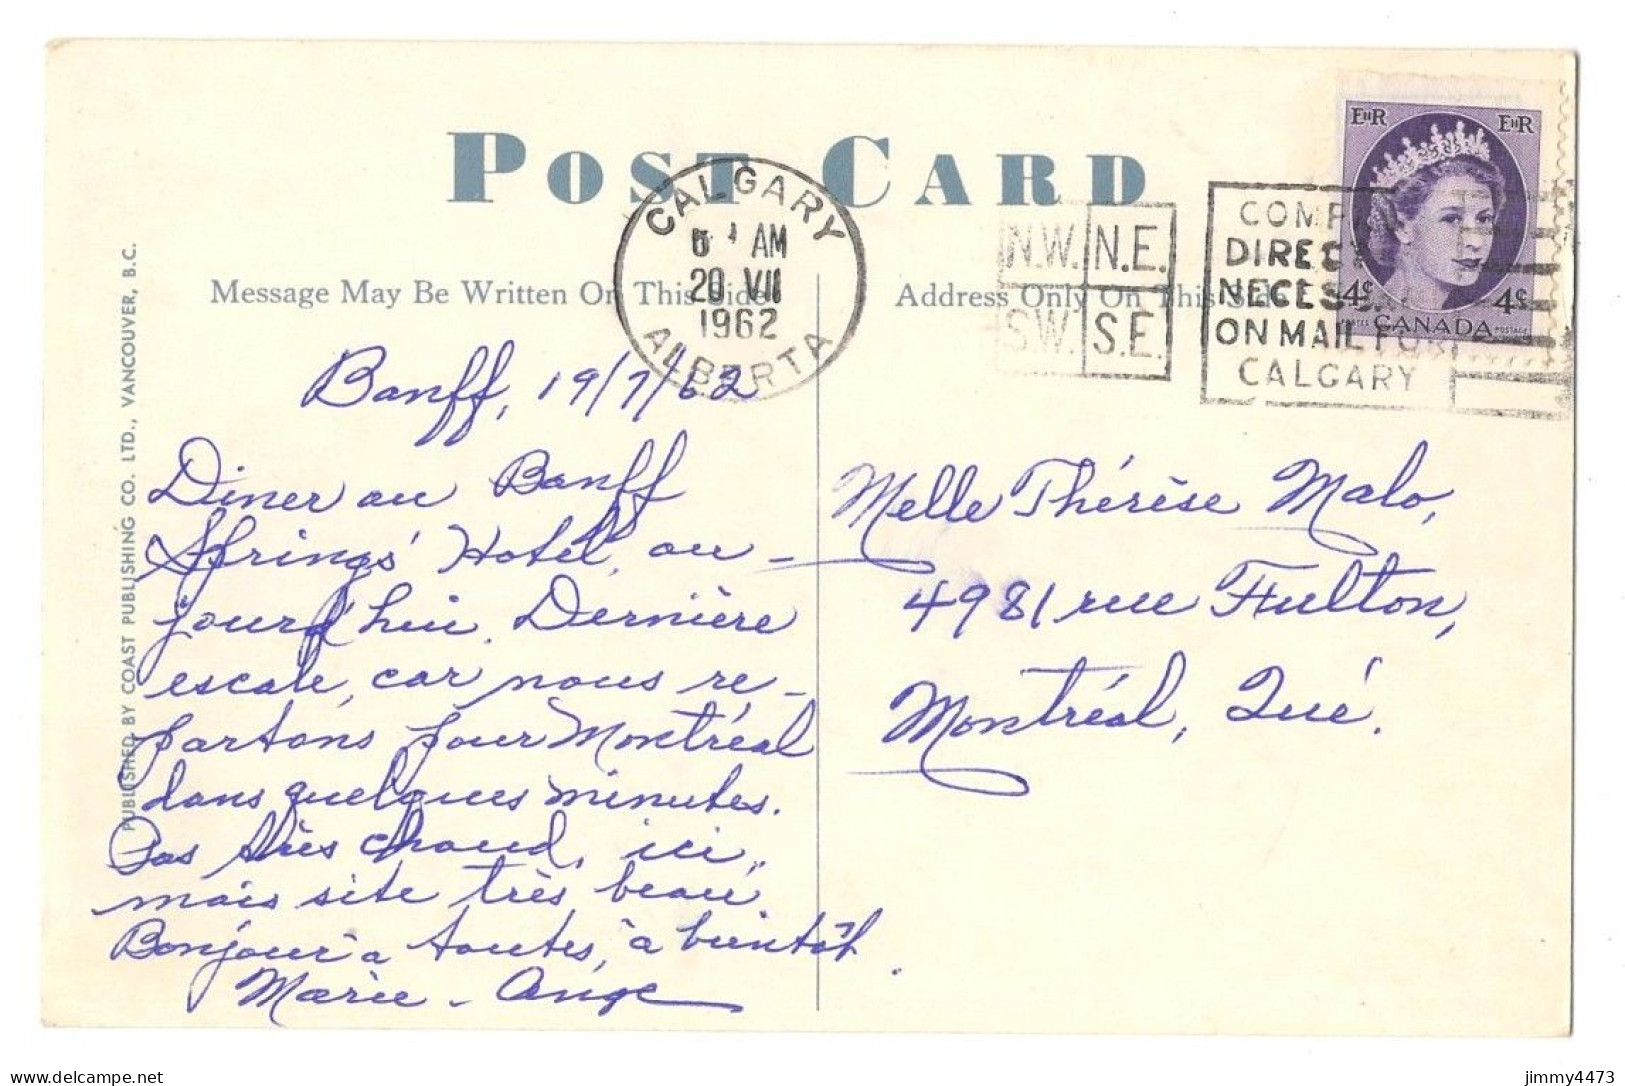 POST CARD
CALGARY
AM
20 VII
1962
ALBERTA
N.W. N.E.
S.W. S.E.
DIRECT
ON MAIL FOR
CALGARY
EIIR EIIR
4¢ 4¢
POSTES CANADA POSTAGE
Message May Be Written On This Side
Address Only On This Side
PUBLISHED BY COAST PUBLISHING CO. LTD., VANCOUVER, B.C.
Banff, 19/7/62
Diner au Banff
Springs' Hotel, au-
jourd'hui. Dernière
escale, car nous re-
partons pour Montréal
dans quelques minutes.
Pas très chaud, ici,
mais site très beau.
Bonjour à toutes, à bientôt.
Marie-Ange
Melle Thérèse Malo,
4981 rue Fulton,
Montréal, Qué.
Delcampe.net
jimmy4473